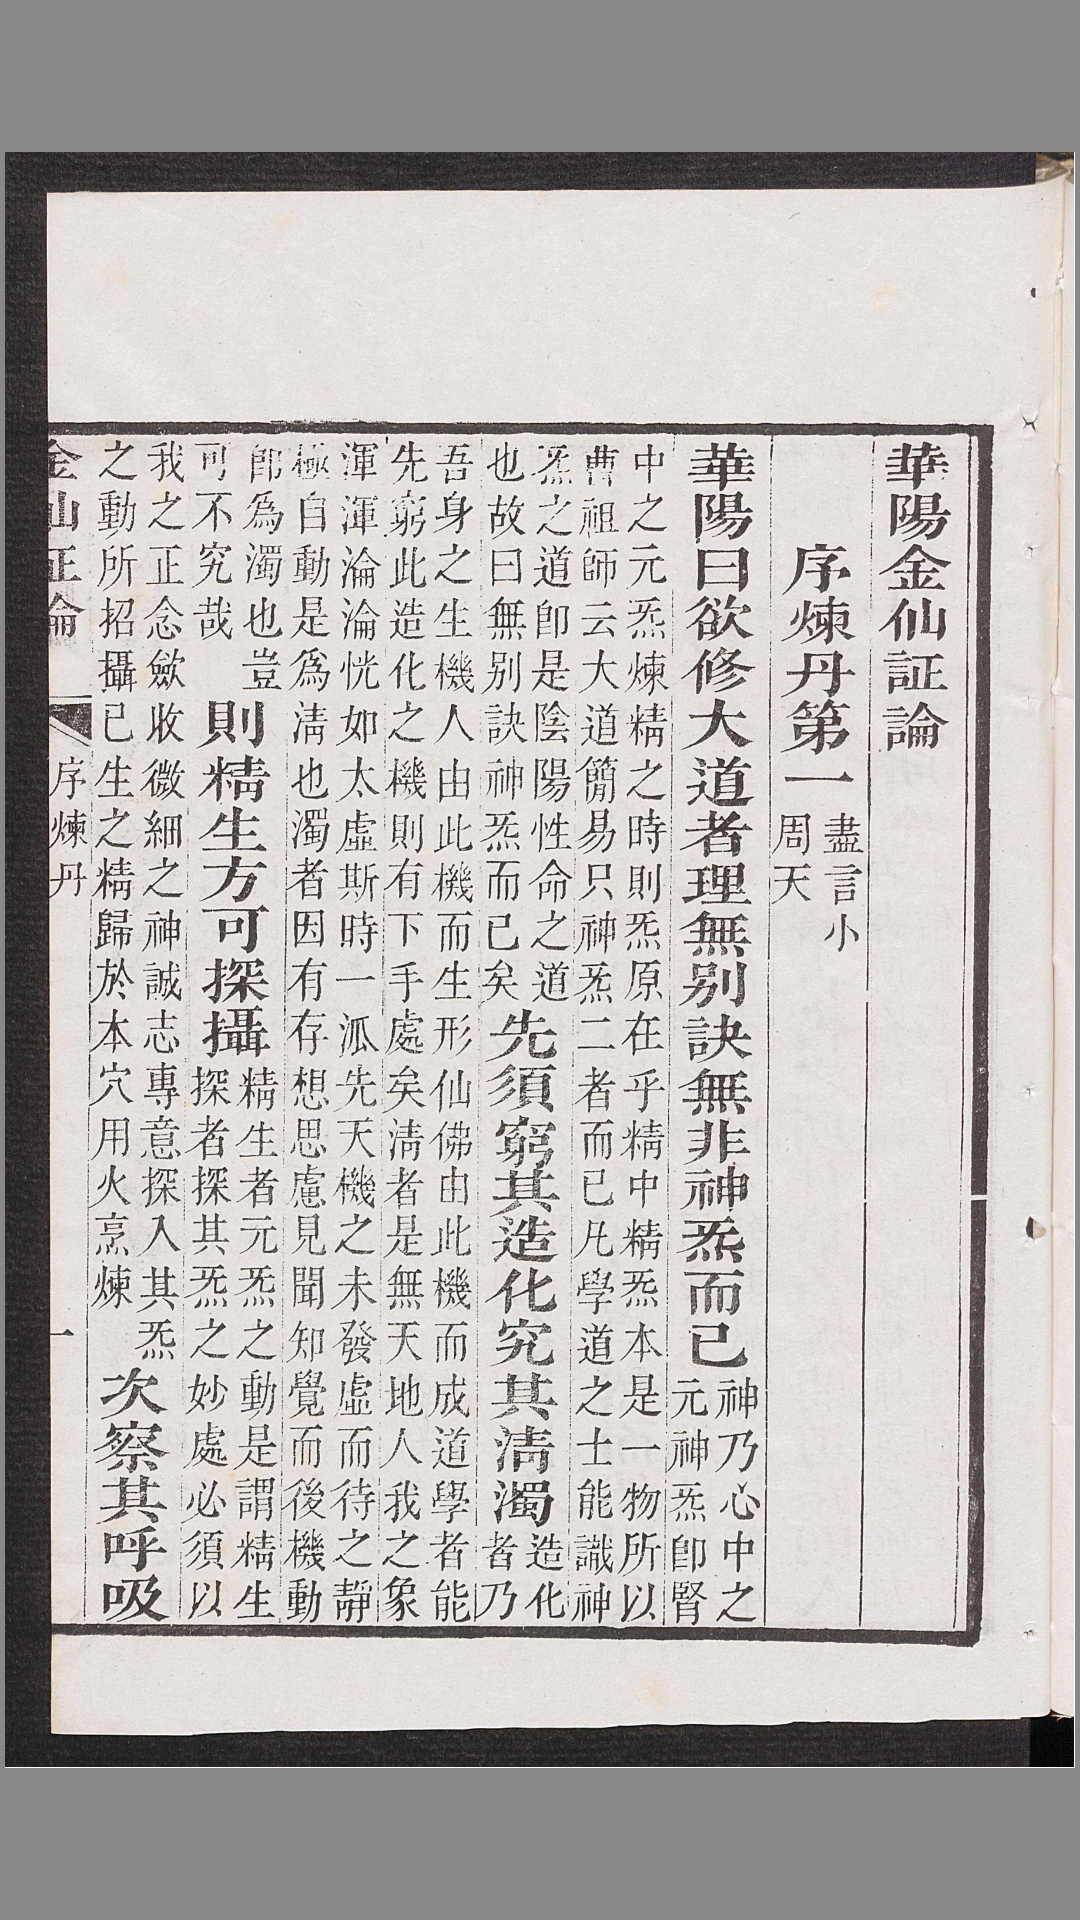 華陽金仙証論
序煉丹第一
盡言小
周天
華陽曰欲修大道者理無別訣無非神炁而已
神乃心中之
元神炁卽腎
中之元炁煉精之時則炁原在乎精中精炁本是一物所以
曹祖師云大道簡易只神炁二者而已凡學道之士能識神
炁之道卽是陰陽性命之道
也故曰無別訣神炁而已矣
先須窮其造化究其淸濁
造化
者乃
吾身之生機人由此機而生形仙佛由此機而成道學者能
先窮此造化之機則有下手處矣淸者是無天地人我之象
渾渾淪淪恍如太虛斯時一泒先天機之未發虛而待之靜
極自動是爲淸也濁者因有存想思慮見聞知覺而後機動
卽爲濁也豈
可不究哉
則精生方可探攝
精生者元炁之動是謂精生
探者探其炁之妙處必須以
我之正念歛收微細之神誠志專意探入其炁
之動所招攝已生之精歸於本穴用火烹煉
次察其呼吸
金仙証論
序煉丹
一